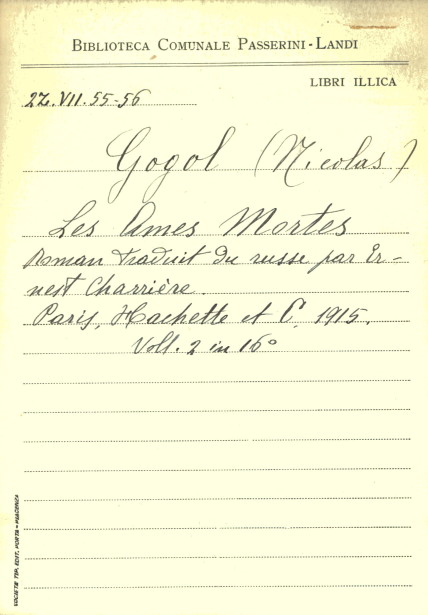 BIBLIOTECA COMUNALE PASSERINI-LANDI
LIBRI ILLICA
2Z.VII.55-56
Gogol (Nicolas)
Les Ames Mortes
Roman traduit du russe par Er-
nest Charrière.
Paris, Hachette et C. 1915.
Voll. 2 in 16°
SOCIETÀ TIP. EDIT. PORTA - PIACENZA